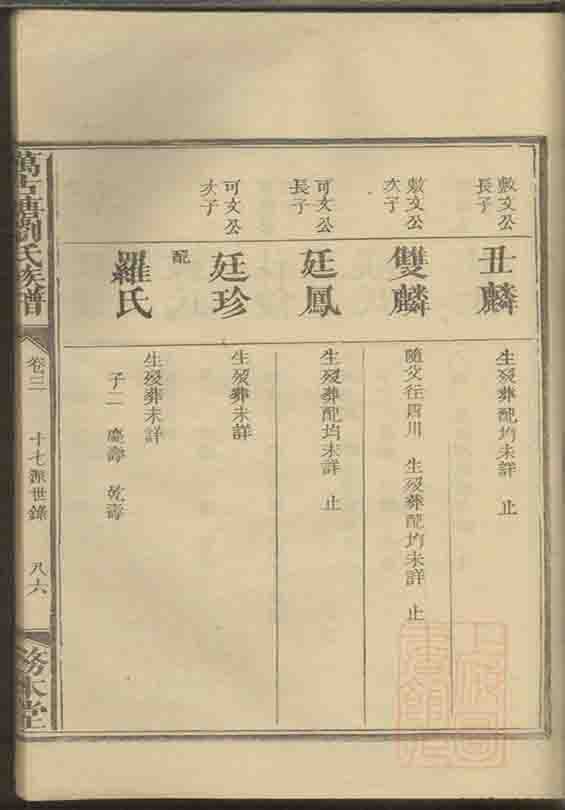 敷文公
長子
丑麟
生歿葬配均未詳 止
敷文公
次子
雙麟
隨父往四川 生歿葬配均未詳 止
可文公
長子
廷鳳
生歿葬配均未詳 止
可文公
次子
廷珍
生歿葬未詳
配
羅氏
生歿葬未詳
子二 慶壽 乾壽
劉氏族譜
卷三
十七派世錄
八六
務本堂